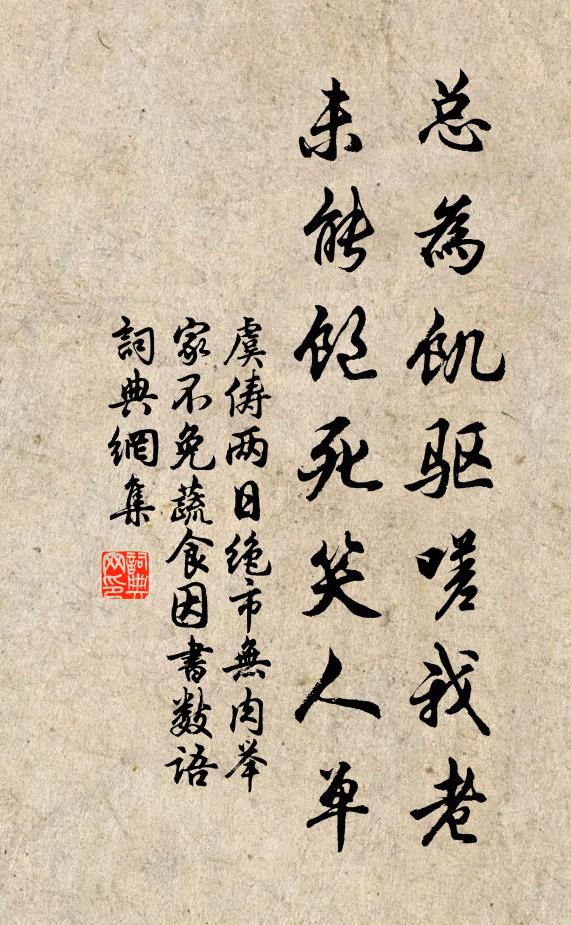 总為飢驱嗟我老
未能饱死笑人单
虞俦两日绝市無肉举
家不免蔬食因書数语
詞典網集
詞典网印